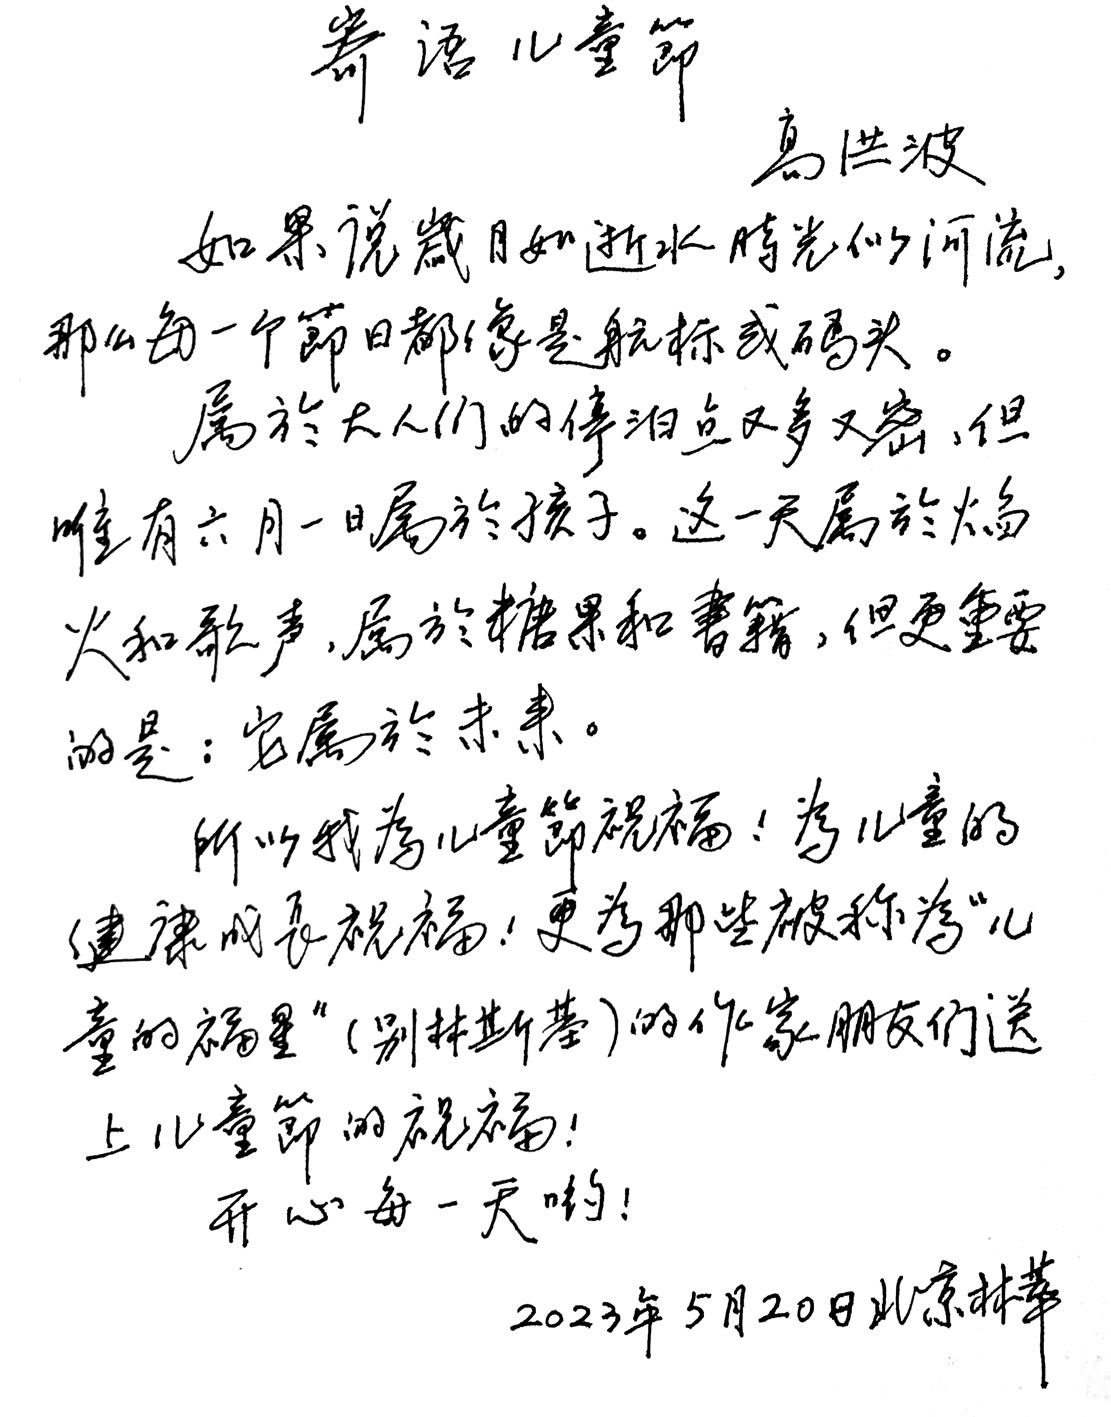 寄语儿童節
高洪波
如果说歲月如逝水時光似河流,
那么每一个節日都像是航标或码头。
属於大人们的停泊点又多又密,但
唯有六月一日属於孩子。这一天属於焰
火和歌声,属於糖果和書籍,但更重要
的是:它属於未来。
所以我為儿童節祝福!為儿童的
健康成長祝福!更為那些被称為“儿
童的福星”(别林斯基)的作家朋友们送
上儿童節的祝福!
开心每一天哟!
2023年5月20日北京林萃